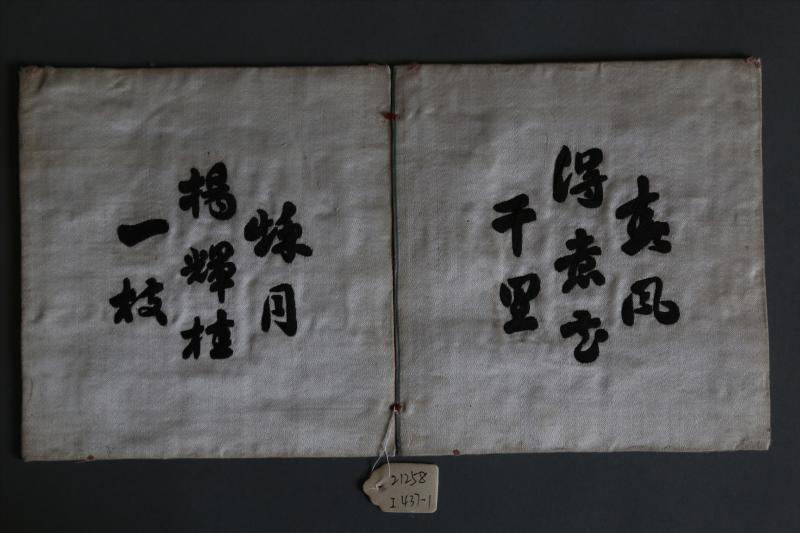 春風
得意花
千里
秋月
揚輝桂
一枝
21258
I 437-1